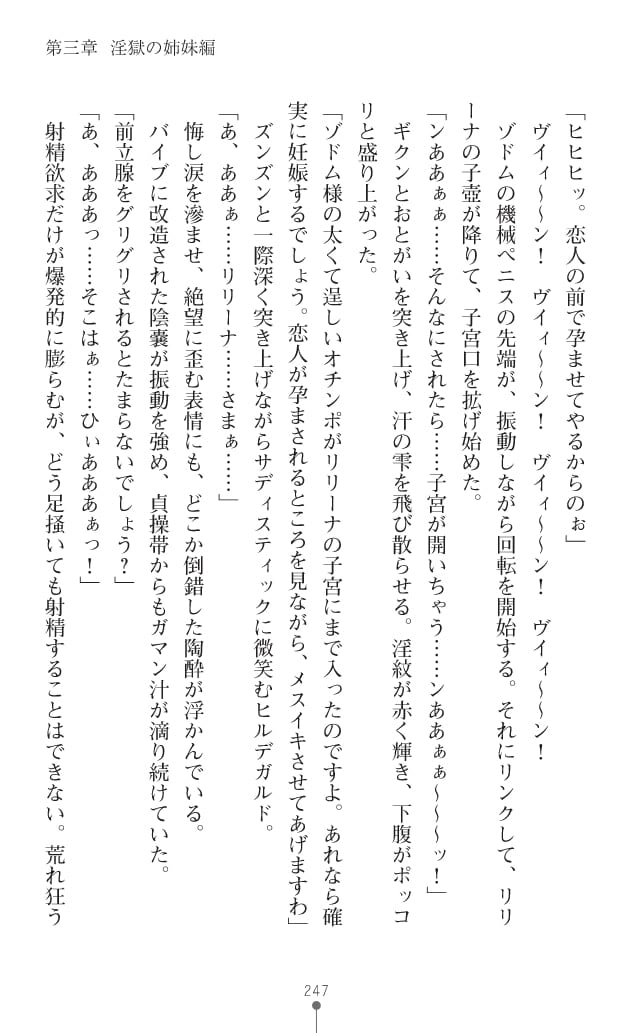 第三章 淫獄の姉妹編
「ヒヒヒッ。恋人の前で孕ませてやるからのぉ」
ヴイィ～～ン！ ヴイィ～～ン！ ヴイィ～～ン！ ヴイィ～～ン！
ゾドムの機械ペニスの先端が、振動しながら回転を開始する。それにリンクして、リリ
ーナの子壺が降りて、子宮口を拡げ始めた。
「ンああぁぁ……そんなにされたら……子宮が開いちゃう……ンああぁぁ～～～ッ！」
ギクンとおとがいを突き上げ、汗の雫を飛び散らせる。淫紋が赤く輝き、下腹がポッコ
リと盛り上がった。
「ゾドム様の太くて逞しいオチンポがリリーナの子宮にまで入ったのですよ。あれなら確
実に妊娠するでしょう。恋人が孕まされるところを見ながら、メスイキさせてあげますわ」
ズンズンと一際深く突き上げながらサディスティックに微笑むヒルデガルド。
「あ、ああぁ……リリーナ……さまぁ……」
悔し涙を滲ませ、絶望に歪む表情にも、どこか倒錯した陶酔が浮かんでいる。
バイブに改造された陰嚢が振動を強め、貞操帯からもガマン汁が滴り続けていた。
「前立腺をグリグリされるとたまらないでしょう？」
「あ、あああっ……そこはぁ……ひぃあああぁっ！」
射精欲求だけが爆発的に膨らむが、どう足掻いても射精することはできない。荒れ狂う
247